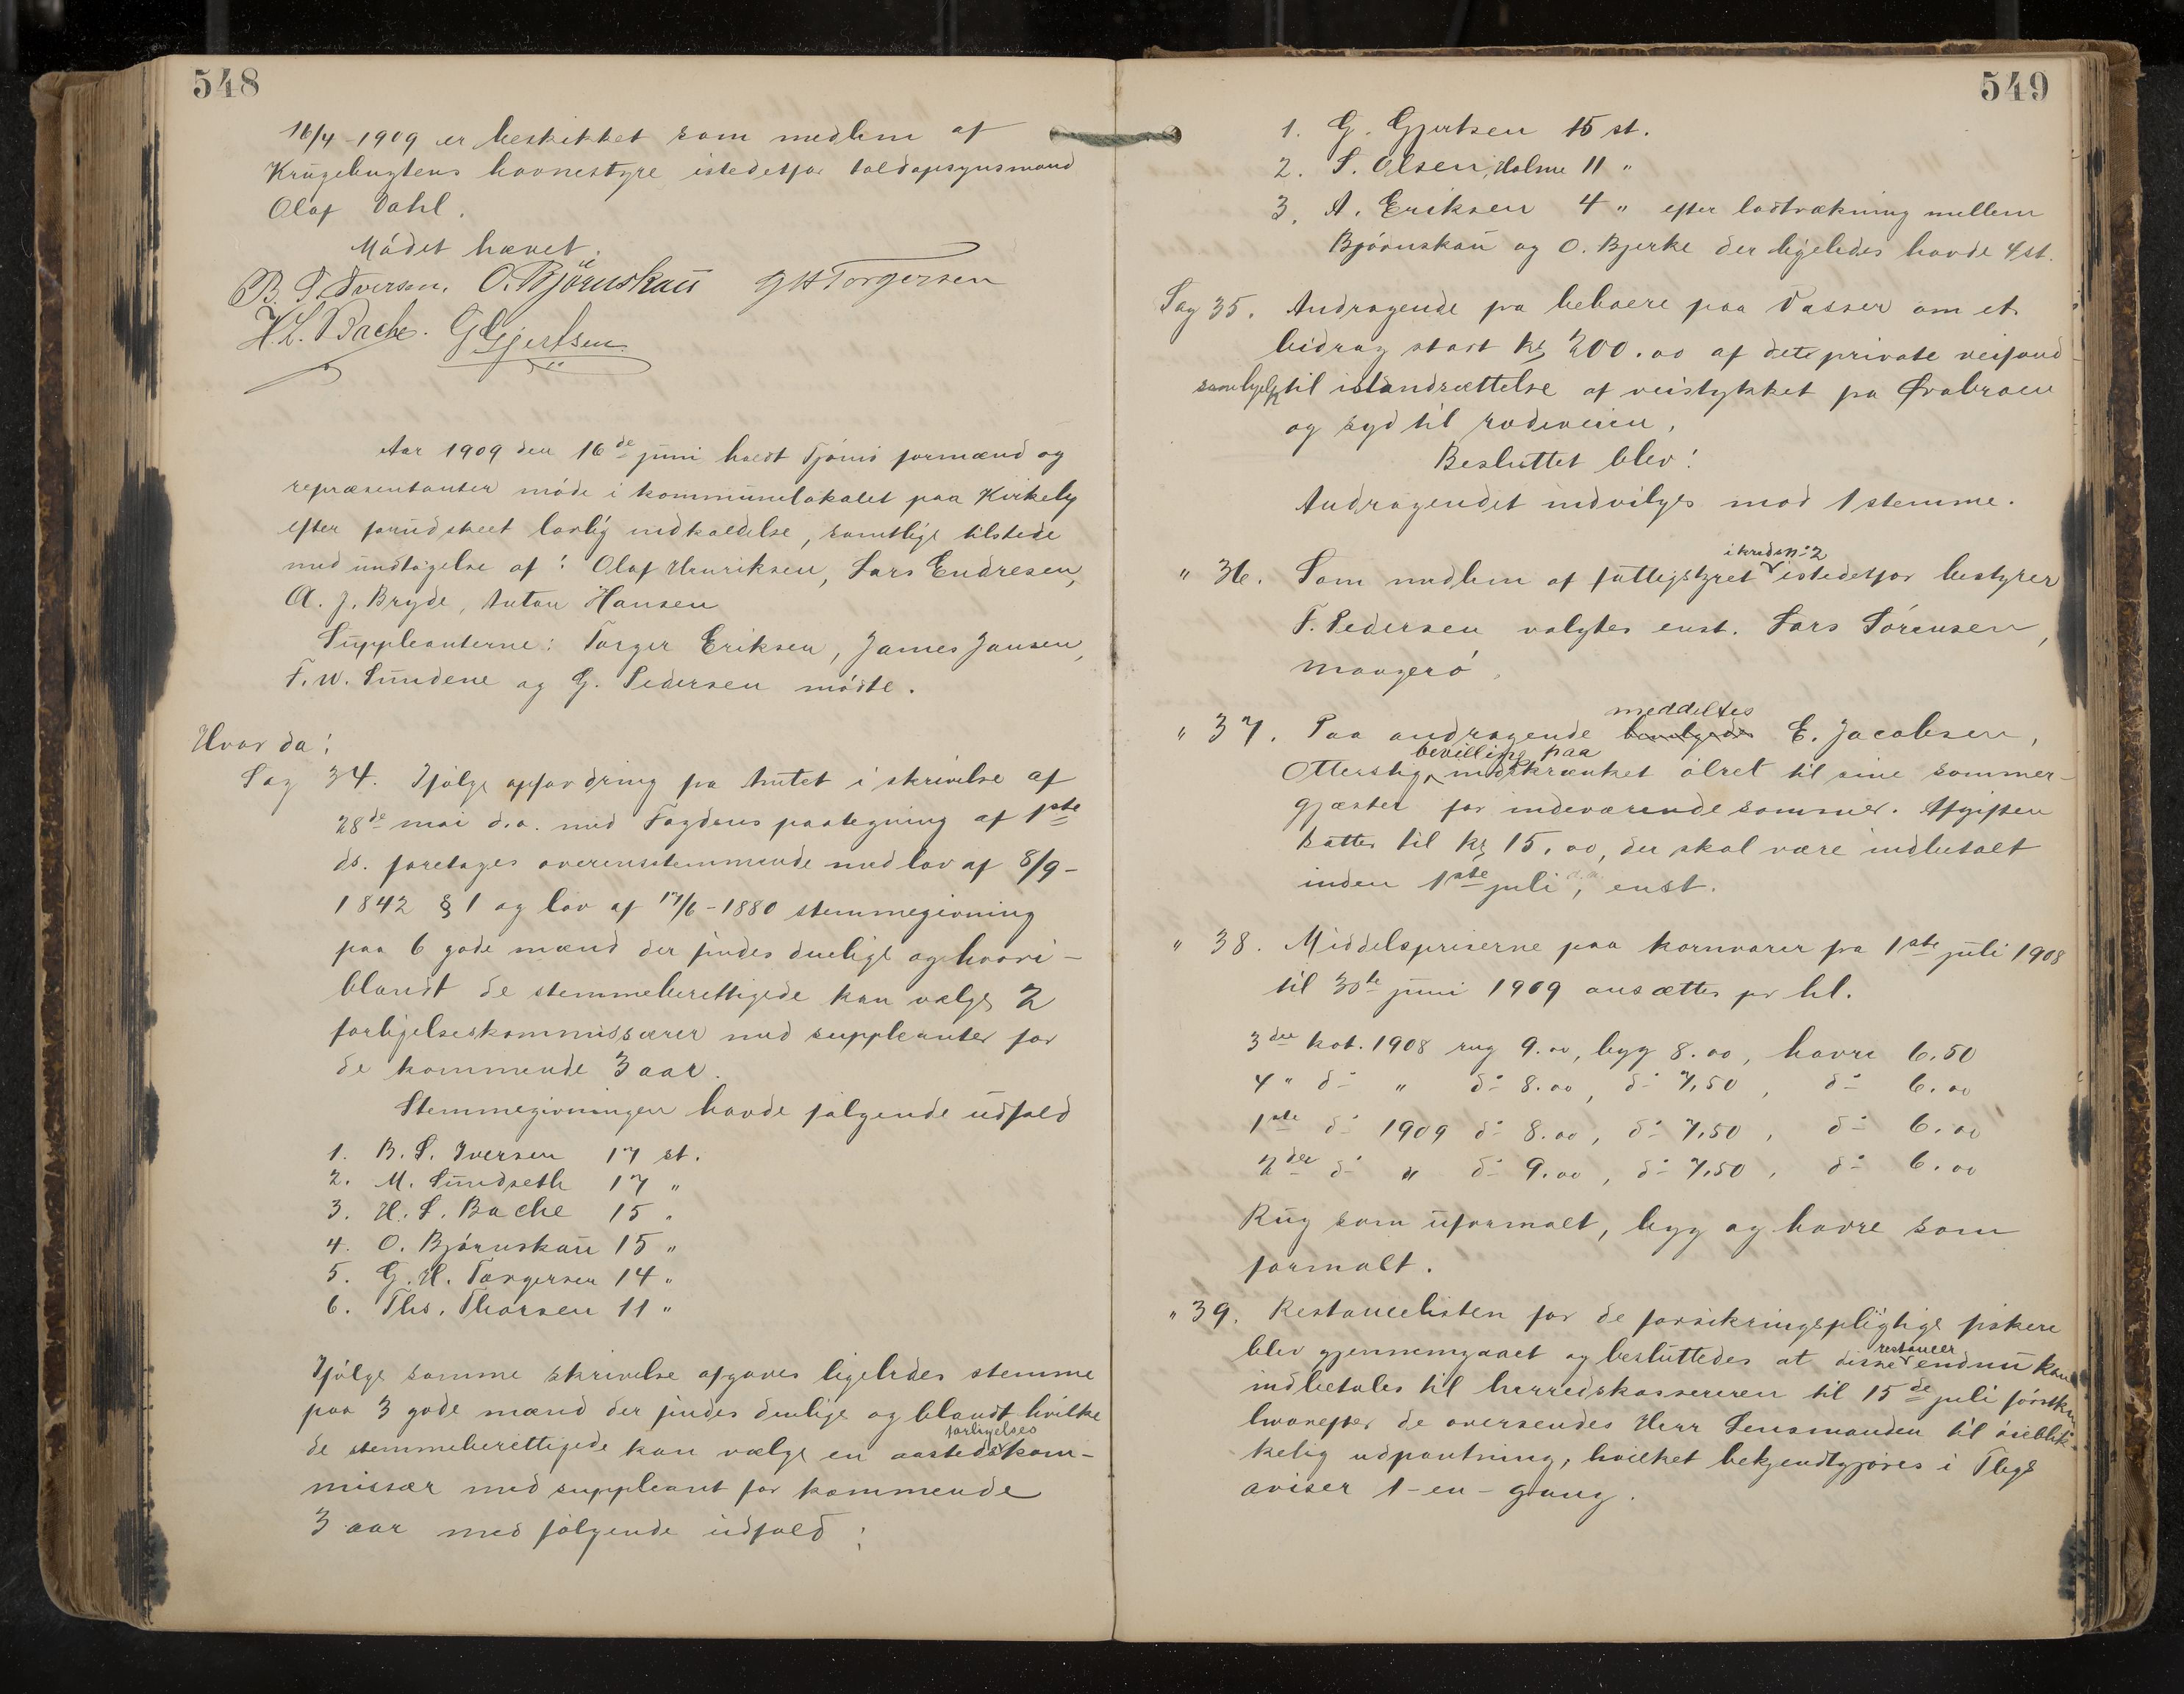 548
16/4-1909 er beskikket som medlem af
Krugebugtens havnestyre istedetfor toldopsynsmand
Olaf Dahl.
Mödet hævet.
B. S. Iversen. O. Björnskau G H Torgersen
H. L. Bache. G Gjertsen
Aar 1909 den 16de juni holdt Tjömö formænd og
repræsentanter möde i kommunelokalet paa Kirkeby
efter forudskeet lovlig indkaldelse, samtlige tilstede
med undtagelse af: Olaf Henriksen, Lars Endresen,
A. J. Bryde, Anton Hansen
Suppleanterne: Torger Eriksen, James Jansen,
F. W. Sundene og G. Pedersen mödte.
Hvor da:
Sag 34. Ifölge opfordring fra Amtet i skrivelse af
28de mai d.a. med Fogdens paategning af 1ste
ds. foretages overensstemmende med lov af 8/9-
1842 § 1 og lov af 17/6-1880 stemmegivning
paa 6 gode mænd der findes duelige og hvori-
blandt de stemmeberettigede kan vælge 2
forligelseskommissærer med suppleanter for
de kommende 3 aar.
Stemmegivningen havde fölgende udfald
1. B. S. Iversen 17 st.
2. M. Sundseth 17 "
3. H. L. Bache 15 "
4. O. Björnskau 15 "
5. G. H. Torgersen 14 "
6. Ths. Thorsen 11 "
Ifölge samme skrivelse afgaves ligeledes stemme
paa 3 gode mænd der findes duelige og blandt hvilke
forligelses
de stemmeberettigede kan vælge en aastedskom-
missær med suppleant for kommende
3 aar med fölgende udfald:
549
1. G. Gjertsen 15 st.
2. S. Olsen, Holme 11 "
3. A. Eriksen 4 " efter lodtrækning mellem
Björnskau og O. Bjerke der ligeledes havde 4 st.
Sag 35. Andragende fra beboere paa Vasser om et
bidrag stort kr 200.00 af det private veifond
som hjelp til istandsættelse af veistykket fra Ørabroen
og syd til rodeveien,
Besluttet blev:
Andragendet indvilges mod 1 stemme.
i kreds n: 2
" 36. Som medlem af fattigstyret istedetfor bestyrer
F. Pedersen valgtes enst. Lars Sörensen,
Maagerö.
meddeltes
" 37. Paa andragende bevilgede E. Jacobsen,
bevilling paa
Otterstig, indskrænket ölret til sine sommer-
gjæster for indeværende sommer. Afgiften
sættes til kr 15.00, der skal være indbetalt
inden 1ste juli d.a., enst.
" 38. Middelspriserne paa kornvarer fra 1ste juli 1908
til 30te juni 1909 ansættes pr hl.
3die kvt. 1908 rug 9.00, byg 8.00, havre 6.50
4 " do " do 8.00, do 7,50, do 6.00
1ste do 1909 do 8.00, do 7,50, do 6.00
2der do " do 9.00, do 7,50, do 6.00
Rug som uformalt, byg og havre som
formalt.
" 39. Restancelisten for de forsikringspligtige fiskere
restancer
blev gjennemgaaet og besluttedes at disse endnu kan
indbetales til herredskassereren til 15de juli förstk
hvorefter de oversendes Herr Lensmanden til öieblik-
kelig udpantning, hvilket bekjendtgjöres i Tbgs
aviser 1-en-gang.